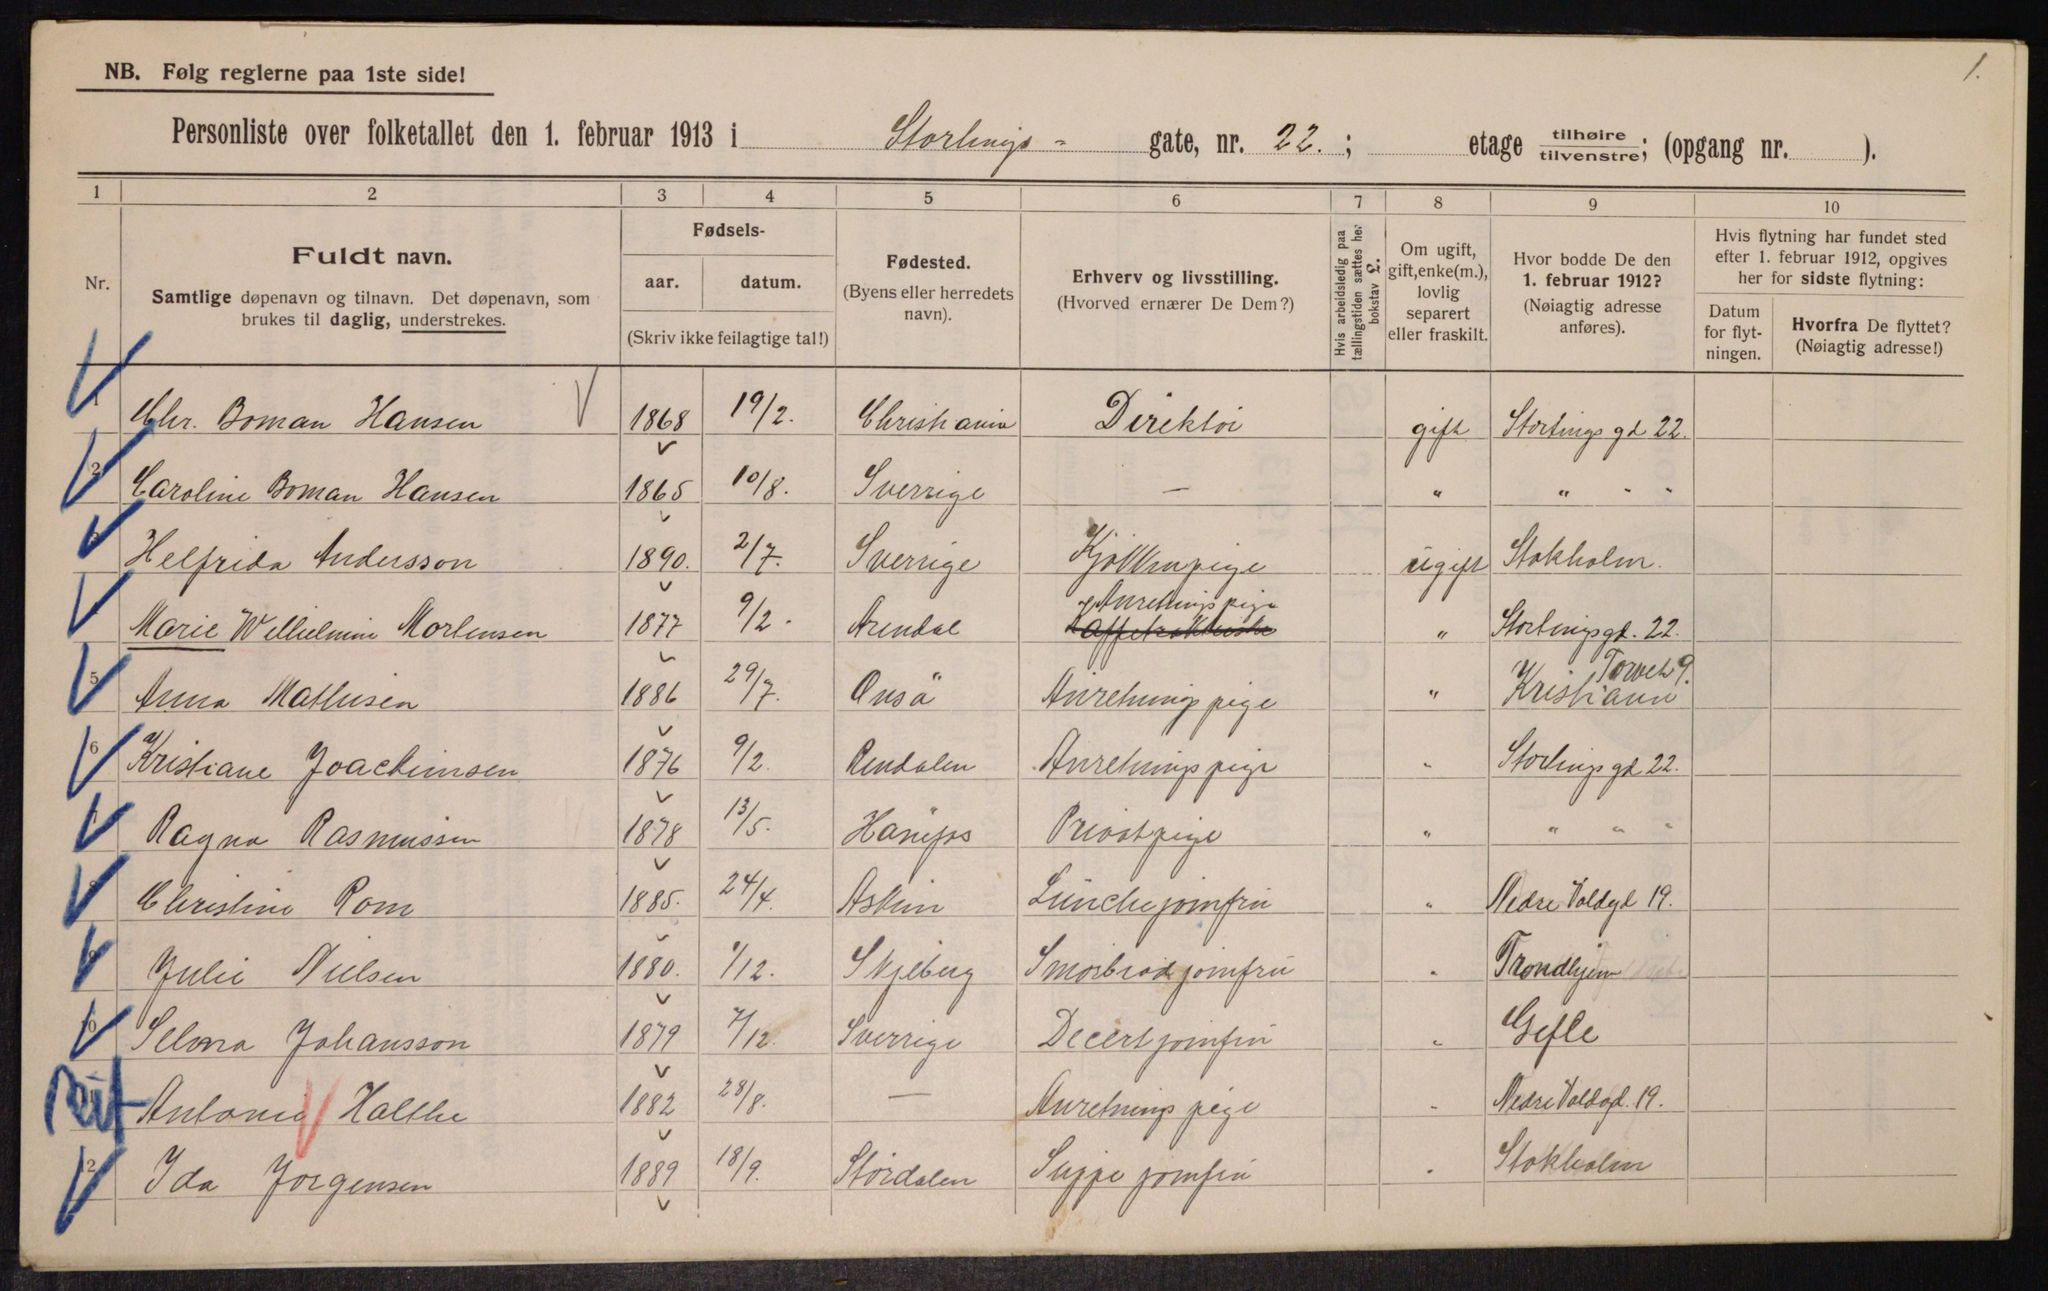 1.
NB. Følg reglerne paa 1ste side!
Personliste over folketallet den 1. februar 1913 i Stortings- gate, nr. 22. ; etage tilhøire tilvenstre; (opgang nr. ).
1 2 3 4 5 6 7 8 9 10
Nr.
Fuldt navn.
Samtlige døpenavn og tilnavn. Det døpenavn, som
brukes til daglig, understrekes.
Fødsels-
aar. datum.
(Skriv ikke feilagtige tal!)
Fødested.
(Byens eller herredets
navn).
Erhverv og livsstilling.
(Hvorved ernærer De Dem?)
Hvis arbeidsledig paa
tællingstiden sættes her
bokstav L.
Om ugift,
gift, enke(m.),
lovlig
separert
eller fraskilt.
Hvor bodde De den
1. februar 1912?
(Nøiagtig adresse
anføres).
Hvis flytning har fundet sted
efter 1. februar 1912, opgives
her for sidste flytning:
Datum
for flyt-
ningen.
Hvorfra De flyttet?
(Nøiagtig adresse!)
1 Chr. Boman Hansen 1868 19/2. Christiania Direktør gift Stortingsgd 22.
2 Caroline Boman Hansen 1865 10/8. Sverrige — " " " "
3 Helfrida Andersson 1890. 2/7. Sverrige Kjökkenpige ugift Stokholm.
4 Marie Wilhelmine Mortensen 1877 9/2. Arendal Anretningspige " Stortingsgd. 22.
5 Anna Mathisen 1886 29/7. Onsö Anretningspige " Torvet 9. Kristiania
6 Kristiane Joachimsen 1876 9/2. Rendalen Anretningspige " Stortingsgd 22.
7 Ragna Rasmussen 1878 13/5. Privatpige " " " "
8 Christine Rom 1885. 24/4. Askim Lunchejomfru " Nedre Voldgd 19.
9 Julie Nielsen 1880. /12. Skjeberg Smörbrödjomfru " Trondhjem
10 Selma Johansson 1879 7/12. Sverrige Decertjomfru " Gefle
Antonie Holthe 1882 28/8. — Anretningspige " Nedre Voldgd. 19.
12 Ida Jorgensen 1889 18/9. Stördalen Suppejomfru " Stokholm